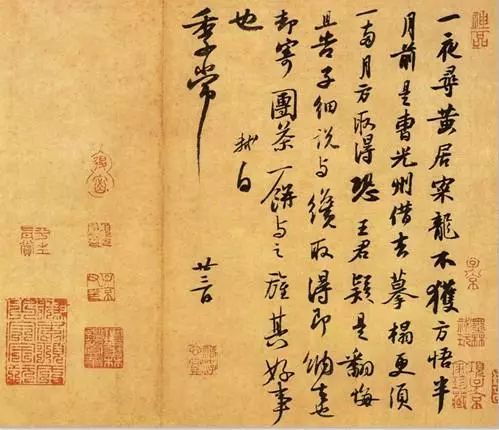 一夜尋黃居寀龍不獲方悟半
月前是曹光州借去摹搨更須
一兩月方取得恐王君疑是翻悔
且告子細說與纔取得即納去也
却寄團茶一餅與之旌其好事
也
軾白
季常
廿三日
神品
項子京家珍藏